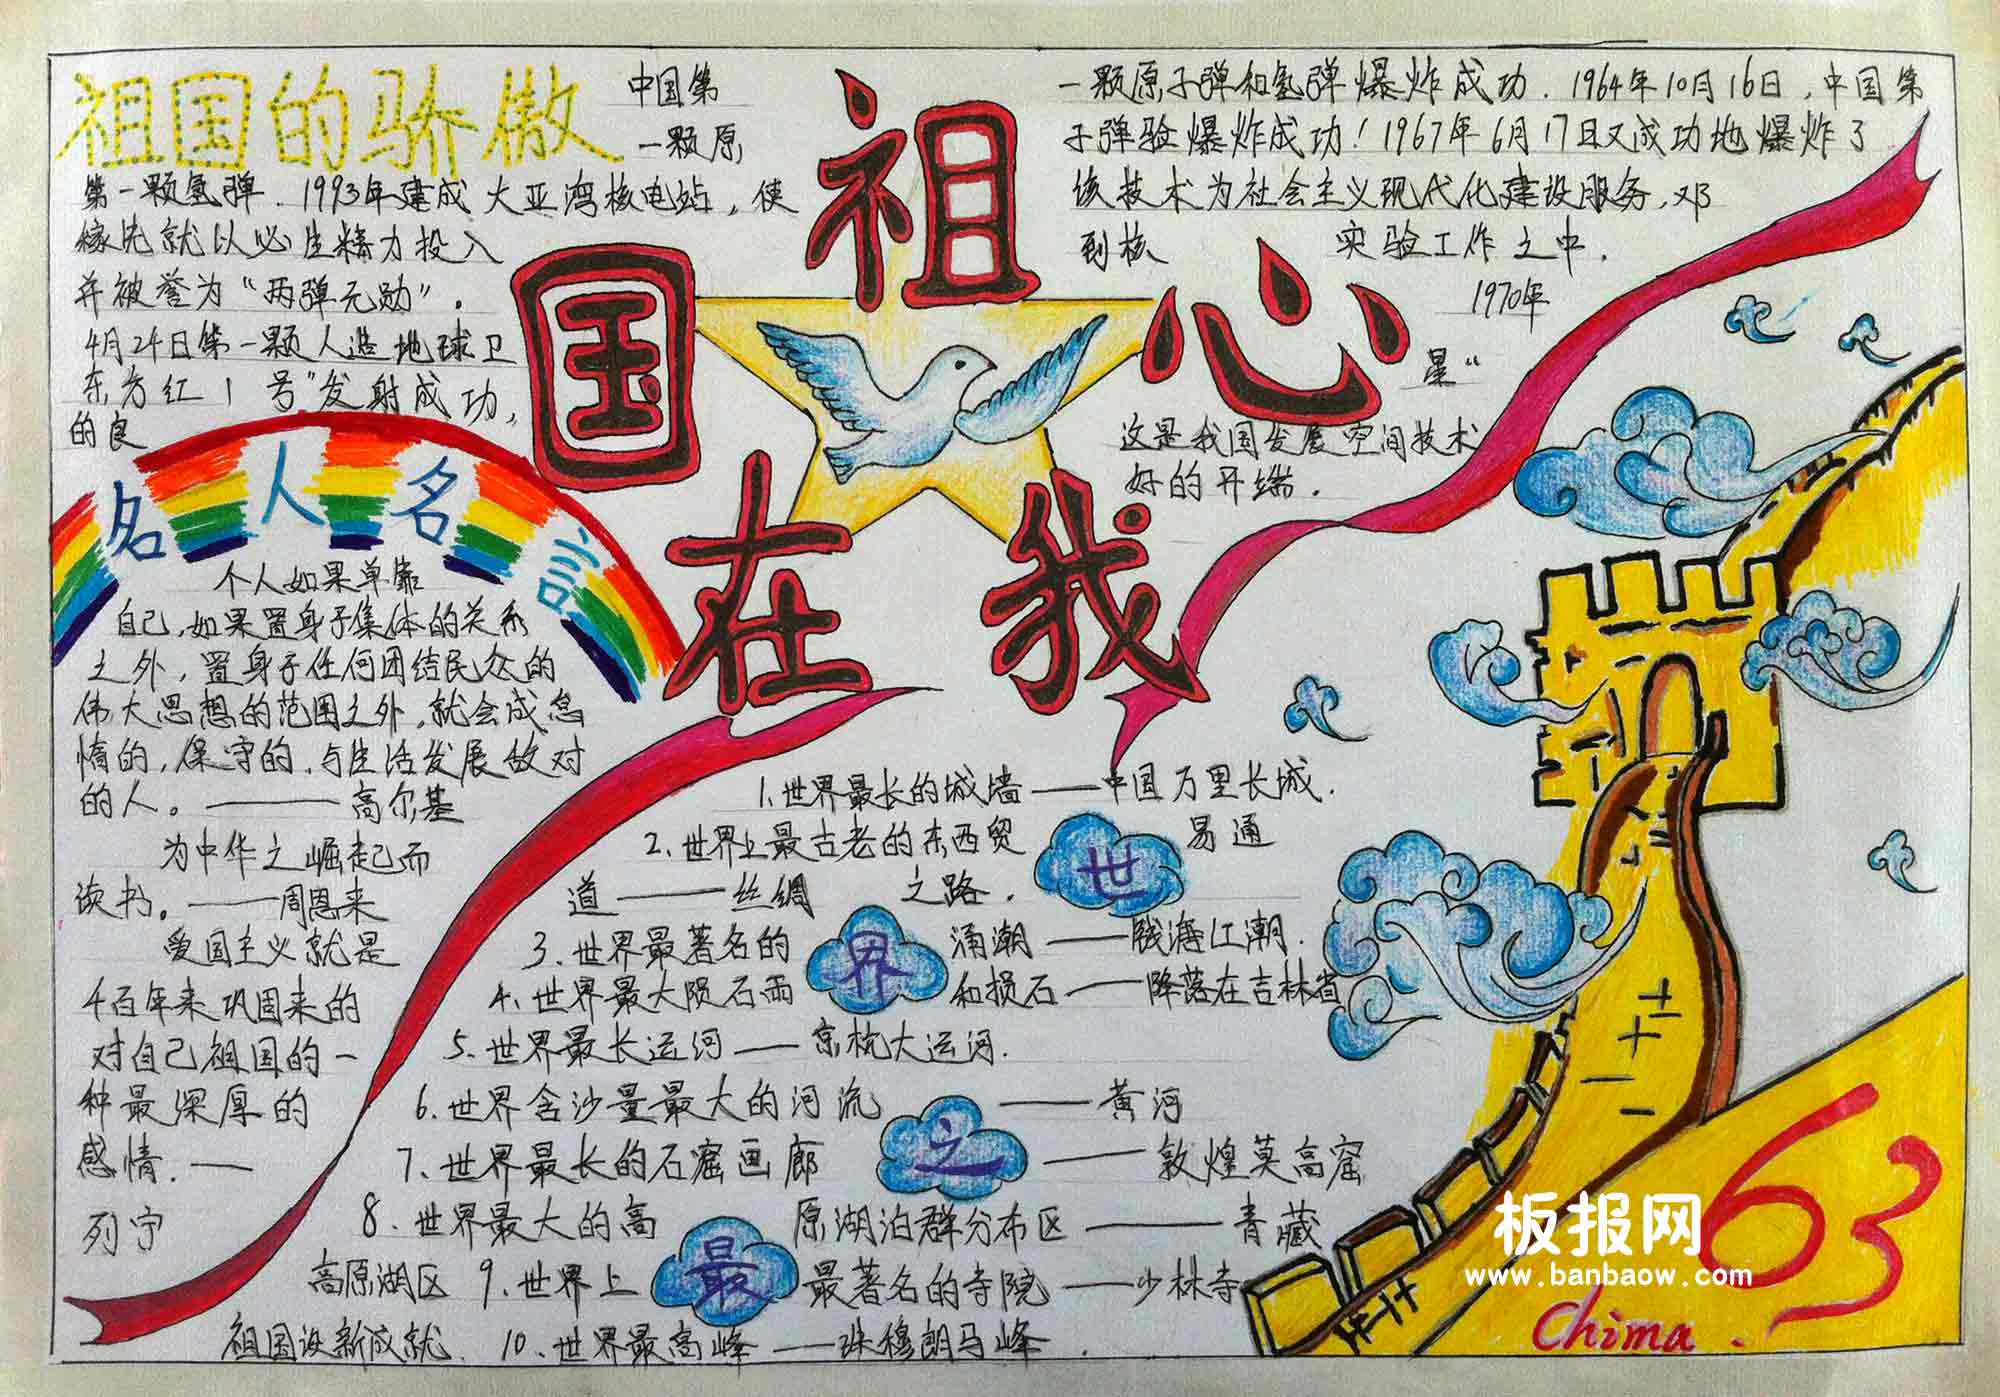 祖国的骄傲
中国第
一颗原子弹和氢弹爆炸成功.1964年10月16日,中国第
一颗原
子弹验爆炸成功!1967年6月17日又成功地爆炸了
第一颗氢弹.1993年建成大亚湾核电站,使
该技术为社会主义现代化建设服务,邓
稼先就以必生精力投入
到核 实验工作之中.
并被誉为“两弹元勋”.
1970年
4月24日第一颗人造地球卫
星“
东方红1号”发射成功,
这是我国发展空间技术
的良
好的开端.
祖国在我心
名人名言
个人如果单靠
自己,如果置身于集体的关系
之外,置身于任何团结民众的
伟大思想的范围之外,就会成怠
惰的,保守的,与生活发展敌对
的人。——高尔基
为中华之崛起而
读书。——周恩来
爱国主义就是
千百年来巩固来的
对自己祖国的一
种最深厚的
感情.——
列宁
世界之最
1.世界最长的城墙——中国万里长城.
2.世界上最古老的东西贸易通
道——丝绸之路.
3.世界最著名的涌潮——钱塘江潮.
4.世界最大陨石雨和损石——降落在吉林省
5.世界最长运河——京杭大运河.
6.世界含沙量最大的河流——黄河
7.世界最长的石窟画廊——敦煌莫高窟
8.世界最大的高原湖泊群分布区——青藏
高原湖区 9.世界上最著名的寺院——少林寺
祖国误新成就. 10.世界最高峰——珠穆朗玛峰.
63
China.
板报网
www.banbaow.com